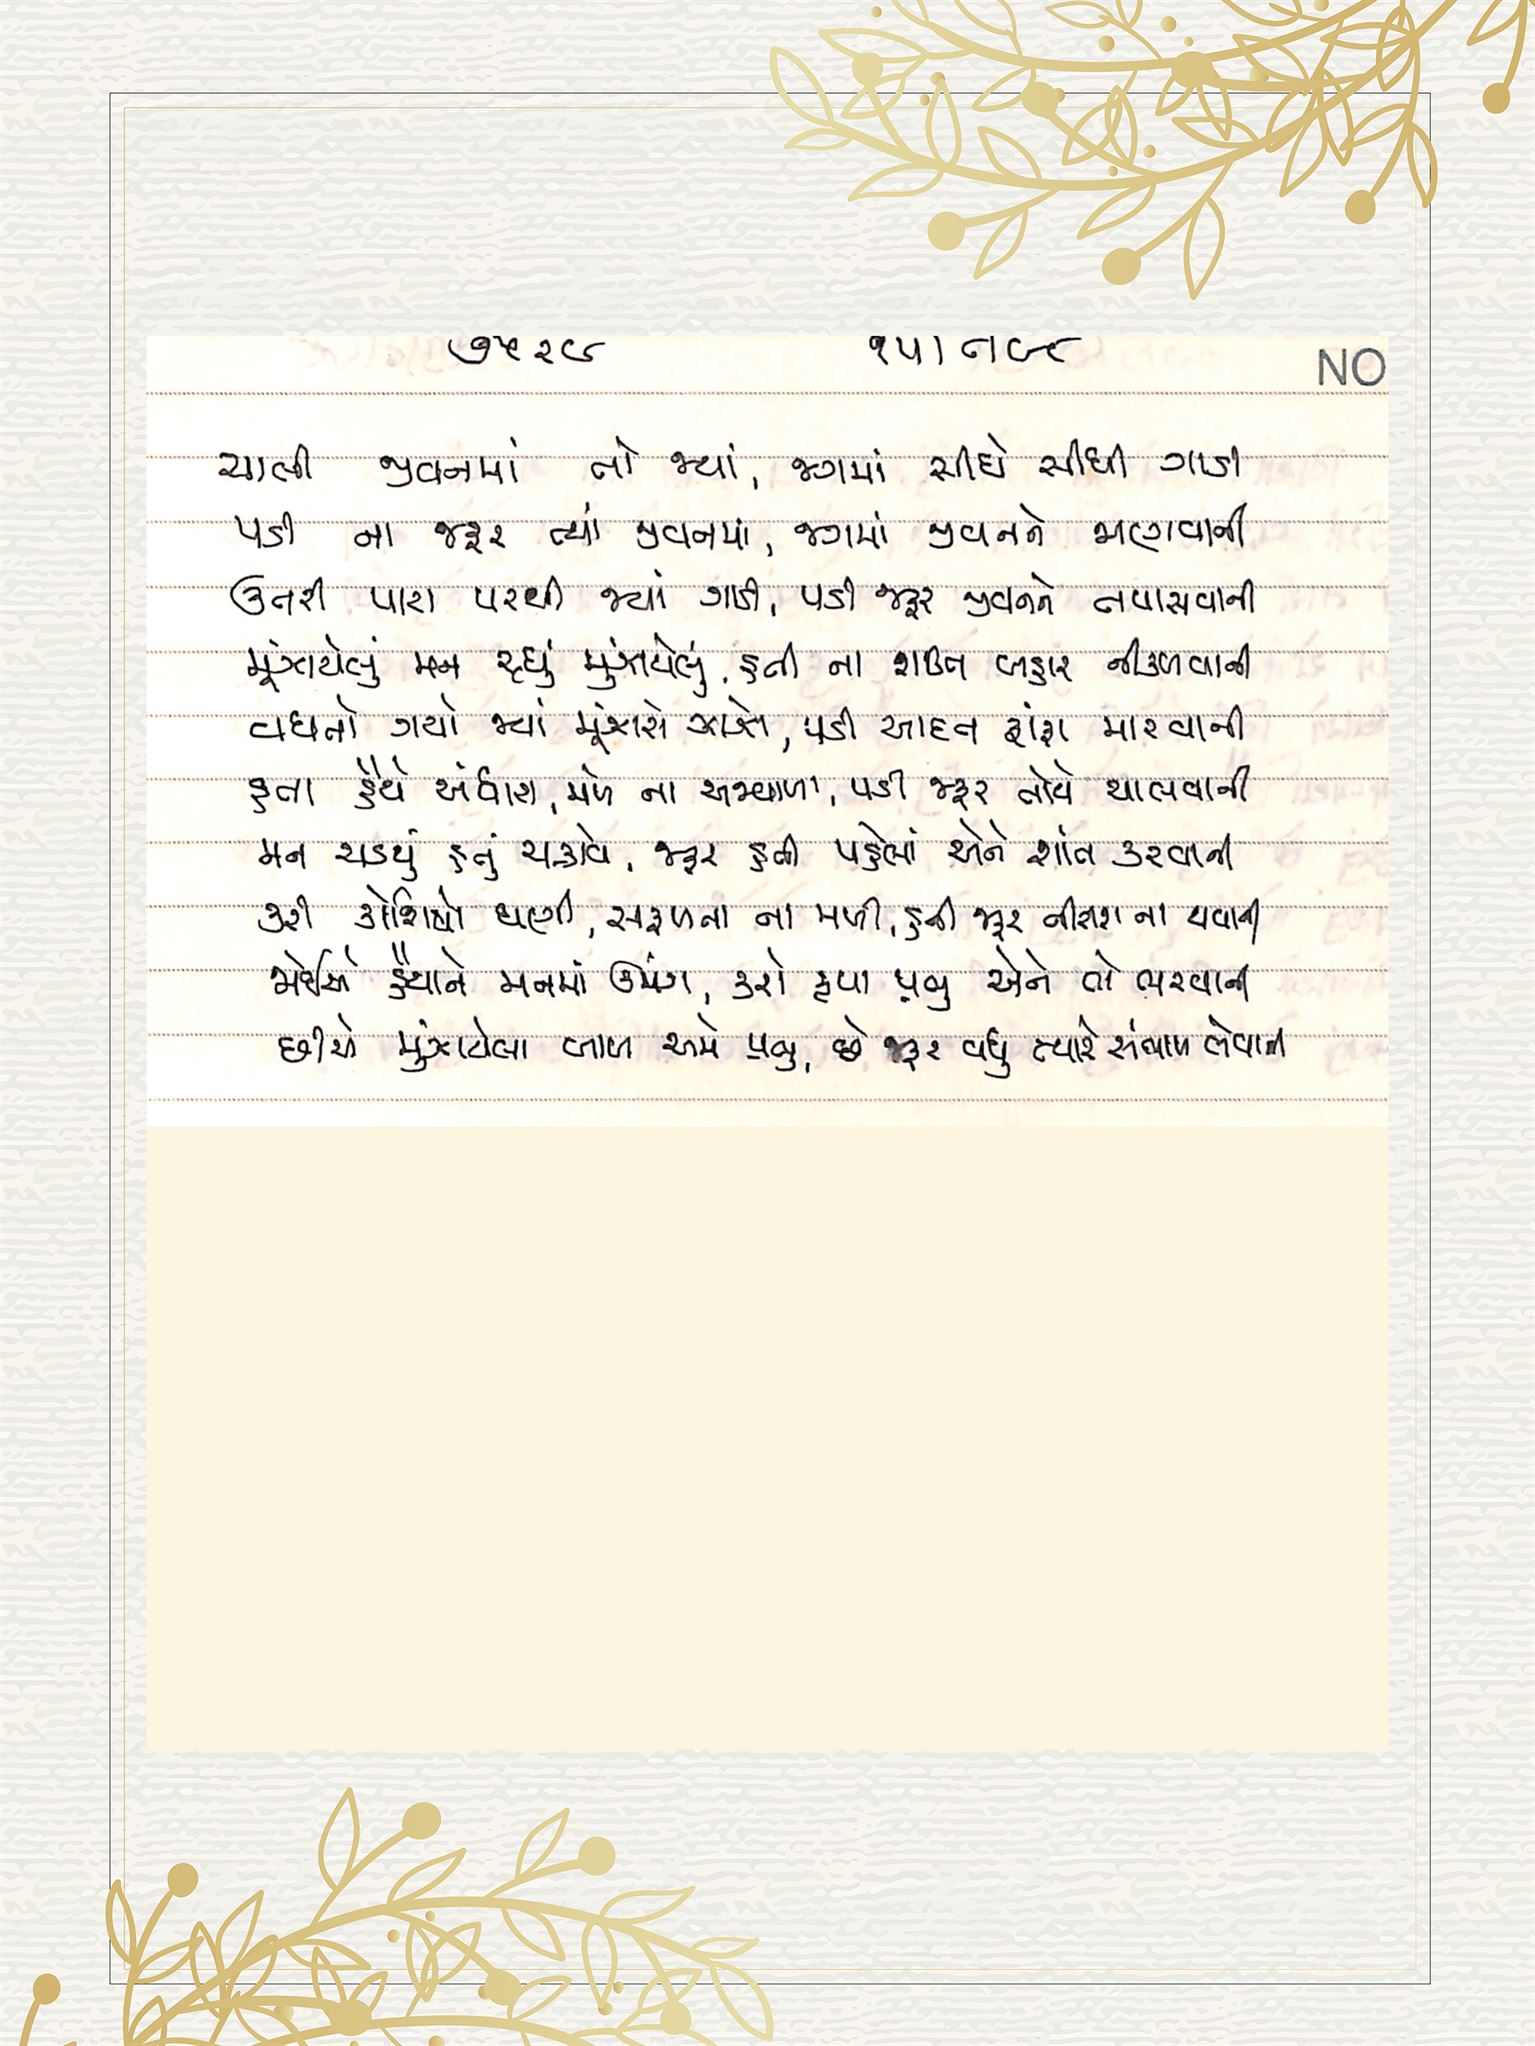 ૭૫૨૯ ૧૫।૮।૯૮
NO
ચાલી જીવનમાં તો જ્યાં, જગમાં સીધે સીધી ગાડી
પડી ના જરૂર ત્યાં જીવનમાં, જગમાં જીવનને જાણવાની
ઉતરી પાટા પરથી જ્યાં ગાડી, પડી જરૂર જીવનને તપાસવાની
મૂંઝાયેલું મન રહ્યું મુંઝાયેલું, હતી ના શક્તિ બહાર નીકળવાની
વધતો ગયો જ્યાં મૂંઝારો ઝાઝો, પડી આદત ફાંફા મારવાની
હતા હૈયે અંધારા, મળે ના અજવાળા, પડી જરૂર તોયે ચાલવાની
મન ચડયું હતું ચકરાવે, જરૂર હતી પહેલાં એને શાંત કરવાની
કરી કોશિષો ઘણી, સફળતા ના મળી, હતી જરૂર નીરાશ ના થવાની
જોઈએ હૈયાને મનમાં ઉમંગ, કરો કૃપા પ્રભુ એને તો ભરવાની
છીએ મુંઝાયેલા બાળ અમે પ્રભુ, છે જરૂર વધુ ત્યારે સંભાળ લેવાની